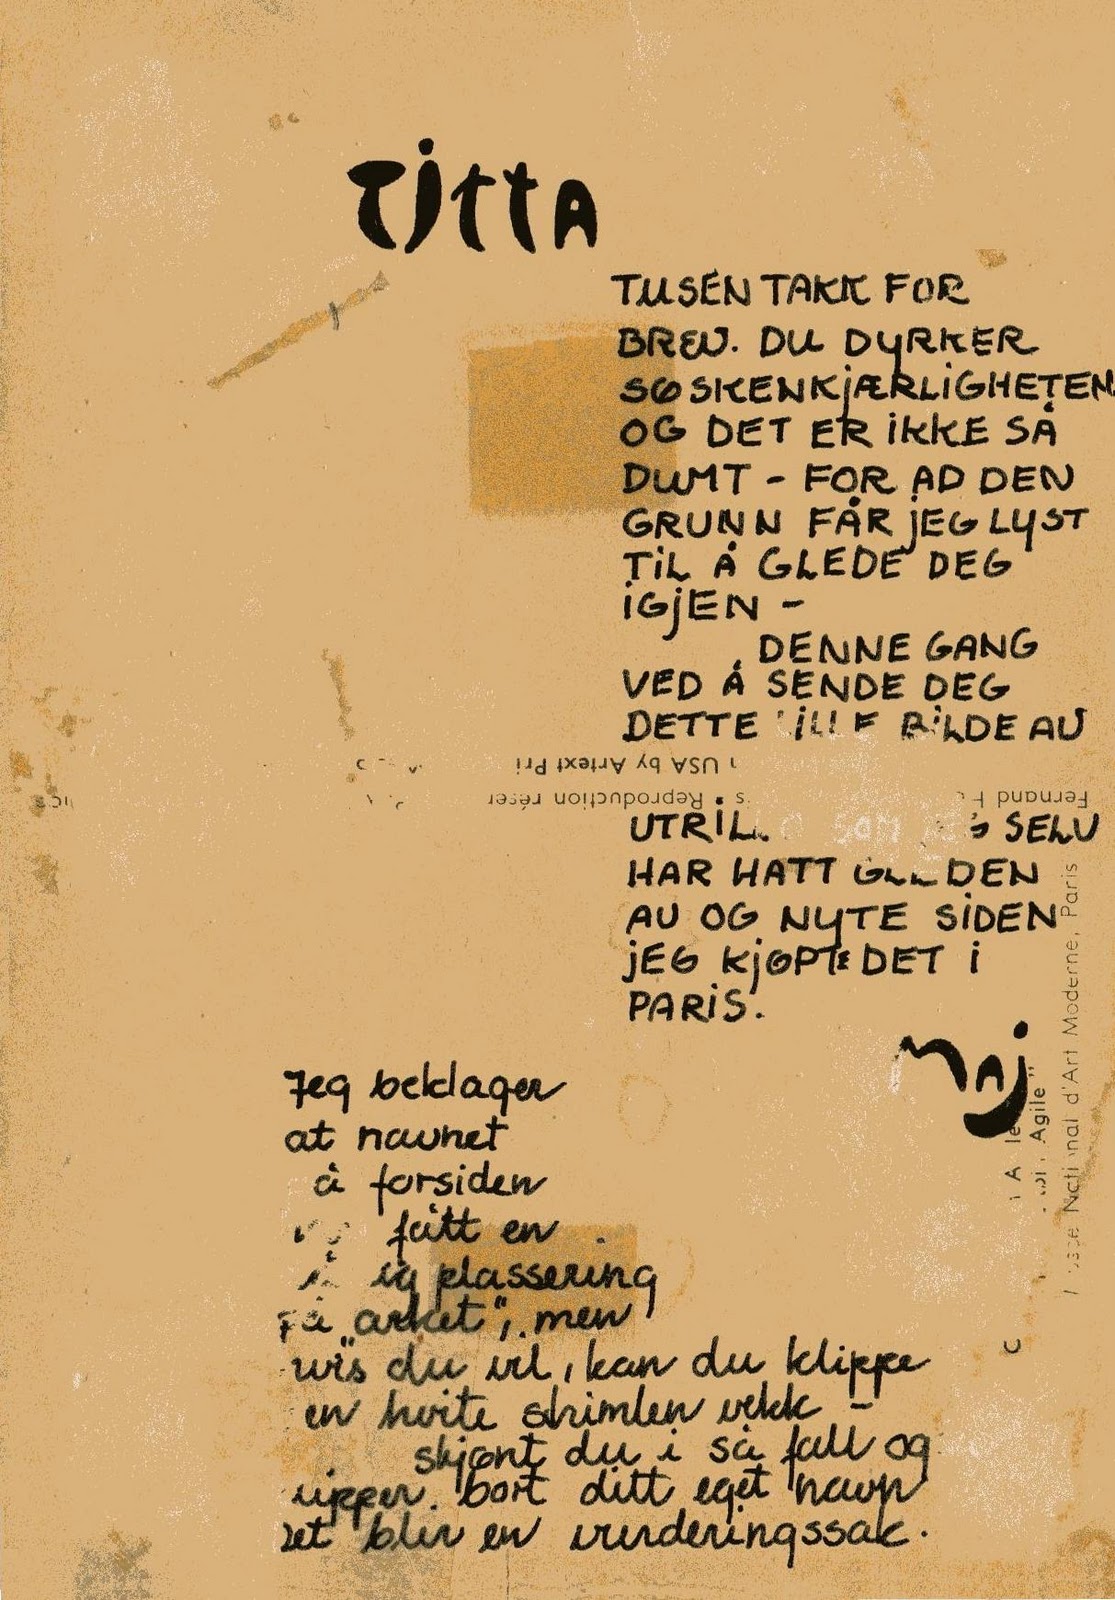 TITTA
TUSEN TAKK FOR
BREV. DU DYRKER
SØSKENKJÆRLIGHETEN
OG DET ER IKKE SÅ
DUMT - FOR AD DEN
GRUNN FÅR JEG LYST
TIL Å GLEDE DEG
IGJEN -
DENNE GANG
VED Å SENDE DEG
DETTE BILDE AV
USA by Artext Pri
Reproduction réser
Fernand
UTRIL. SELV
HAR HATT GLEDEN
AV OG NYTE SIDEN
JEG KJØPTE DET I
PARIS.
MAJ
National d'Art Moderne, Paris
Agile"
Jeg beklager
at navnet
å forsiden
fått en
plassering
"arket", men
vis du vil, kan du klippe
en hvite strimlen vekk -
skjønt du i så fall og
ipper bort ditt eget navn
et blir en vurderingssak.